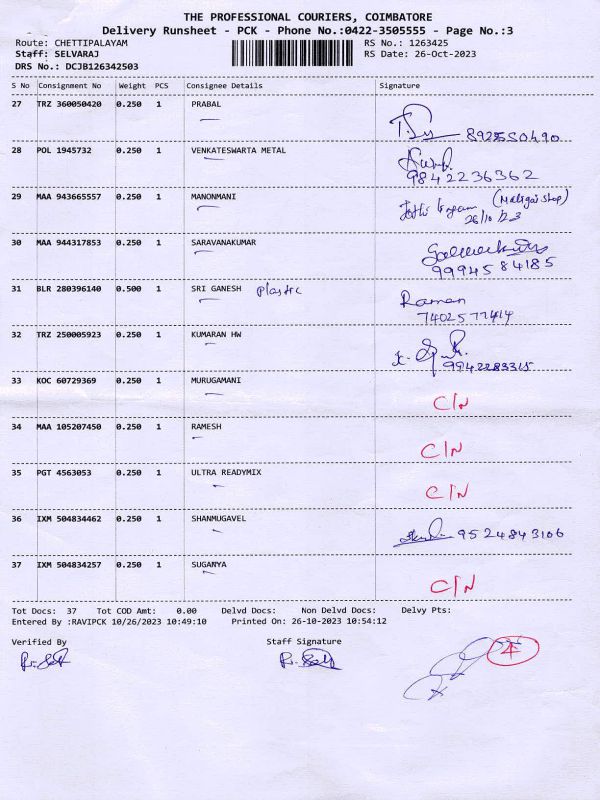 THE PROFESSIONAL COURIERS, COIMBATORE
Delivery Runsheet - PCK - Phone No.:0422-3505555 - Page No.:3
Route: CHETTIPALAYAM RS No.: 1263425
Staff: SELVARAJ RS Date: 26-Oct-2023
DRS No.: DCJB126342503
S No Consignment No Weight PCS Consignee Details Signature
27 TRZ 360050420 0.250 1 PRABAL
28 POL 1945732 0.250 1 VENKATESWARTA METAL
9842236362
29 MAA 943665557 0.250 1 MANONMANI
26/10/23
30 MAA 944317853 0.250 1 SARAVANAKUMAR
9994584185
31 BLR 280396140 0.500 1 SRI GANESH Plastic Raman
7402577414
32 TRZ 250005923 0.250 1 KUMARAN HW
9942283315
33 KOC 60729369 0.250 1 MURUGAMANI
C/N
34 MAA 105207450 0.250 1 RAMESH
C/N
35 PGT 4563053 0.250 1 ULTRA READYMIX
C/N
36 IXM 504834462 0.250 1 SHANMUGAVEL
9524843106
37 IXM 504834257 0.250 1 SUGANYA
C/N
Tot Docs: 37 Tot COD Amt: 0.00 Delvd Docs: Non Delvd Docs: Delvy Pts:
Entered By :RAVIPCK 10/26/2023 10:49:10 Printed On: 26-10-2023 10:54:12
Verified By Staff Signature